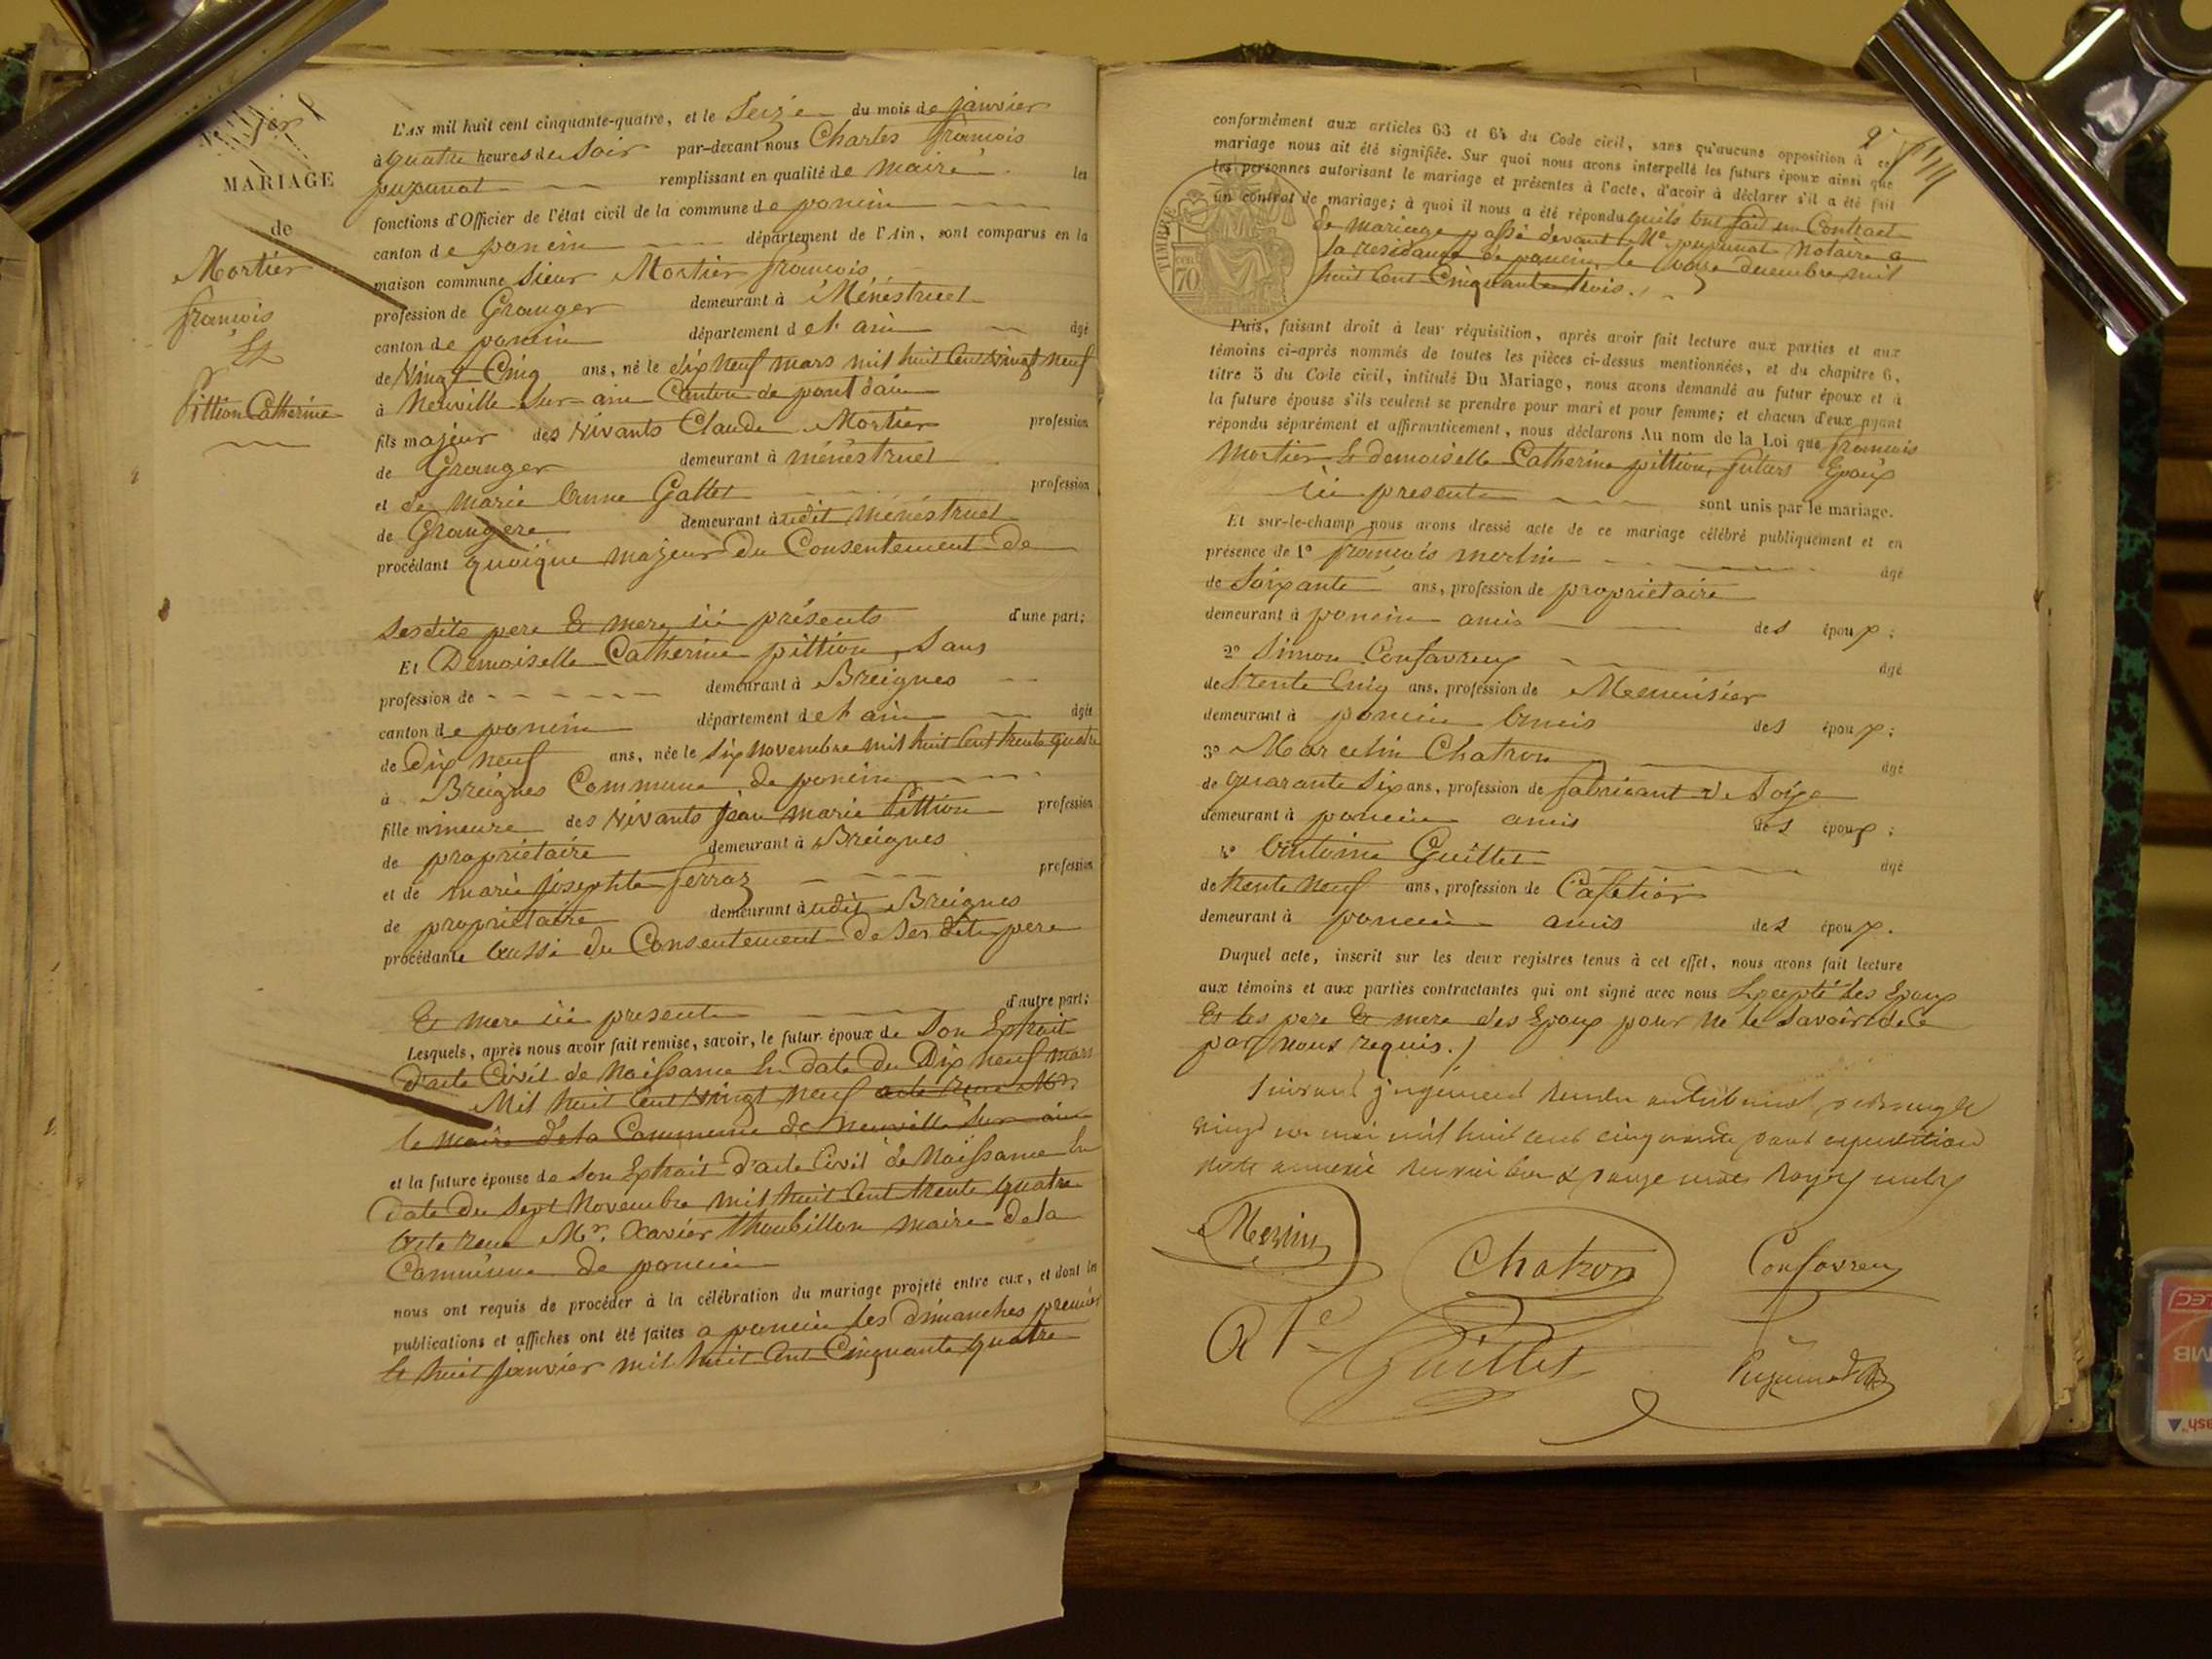 N.° 1er
MARIAGE
de
Mortier
françois
Et
Pittion Catherine
L'AN mil huit cent cinquante-quatre, et le Seize du mois de janvier
à quatre heures du Soir par-devant nous Charles françois
pupunat remplissant en qualité de maire les
fonctions d'Officier de l'état civil de la commune de poncin
canton de poncin département de l'Ain, sont comparus en la
maison commune Sieur Mortier françois
profession de Granger demeurant à Ménestruel
canton de poncin département de l'ain âgé
de Vingt Cinq ans, né le dix neuf mars mil huit Cent Vingt neuf
à Neuville Sur ain Canton de pont d'ain
fils majeur des Vivants Claude Mortier profession
de Granger demeurant à ménéstruel
et de marie Anne Gallet profession
de Grangere demeurant audit ménéstruel
procédant quoique majeur du Consentement de
Sesdits pere Et mere ici présents d'une part;
Et Demoiselle Catherine pittion, Sans
profession de demeurant à Breignes
canton de poncin département de l'ain âgée
de Dix neuf ans, née le Six Novembre mil huit Cent trente quatre
à Breignes Commune de poncin
fille mineure des Vivants Jean marie Pittion profession
de propriétaire demeurant à Breignes
et de marie josephte ferraz profession
de propriétaire demeurant audit Breignes
procédante aussi du Consentement de Ses dits pere
Et mere ici present d'autre part;
Lesquels, après nous avoir fait remise, savoir, le futur époux de Son Extrait
d'acte Civil de Naissance En date du Dix neuf mars
Mil huit Cent Vingt neuf acte reçu Mr.
le maire de la Commune de Neuville Sur ain
et la future épouse de Son Extrait d'acte Civil de Naissance En
date du Sept Novembre mil huit Cent trente quatre
Acte reçu Mr. Xavier thoubillon maire de la
Commune de poncin
nous ont requis de procéder à la célébration du mariage projeté entre eux, et dont les
publications et affiches ont été faites a poncin les dimanches premier
Et huit janvier mil huit Cent Cinquante quatre
conformément aux articles 63 et 64 du Code civil, sans qu'aucune opposition à ce
mariage nous ait été signifiée. Sur quoi nous avons interpellé les futurs époux ainsi que
les personnes autorisant le mariage et présentes à l'acte, d'avoir à déclarer s'il a été fait
un contrat de mariage; à quoi il nous a été répondu quils ont fait un Contract
de mariage passé devant Me pupunat Notaire a
la residance de poncin le onze decembre mil
huit Cent Cinquante trois.
TIMBRE
70
Puis, faisant droit à leur réquisition, après avoir fait lecture aux parties et aux
témoins ci-après nommés de toutes les pièces ci-dessus mentionnées, et du chapitre 6,
titre 5 du Code civil, intitulé Du Mariage, nous avons demandé au futur époux et à
la future épouse s'ils veulent se prendre pour mari et pour femme; et chacun d'eux ayant
répondu séparément et affirmativement, nous déclarons Au nom de la Loi que françois
Mortier Et demoiselle Catherine pittion, futurs Epoux
ici presents sont unis par le mariage.
Et sur-le-champ nous avons dressé acte de ce mariage célébré publiquement et en
présence de 1° françois merlin âgé
de Soixante ans, profession de propriétaire
demeurant à poncin amis des époux;
2° Simon Confavreux âgé
de trente Cinq ans, profession de Menuisier
demeurant à poncin Amis des époux;
3° Marcelin Chatron âgé
de quarante Six ans, profession de fabricant de Soize
demeurant à poncin amis des époux;
4° Antoine Guillet âgé
de trente neuf ans, profession de Cafetier
demeurant à poncin amis des époux.
Duquel acte, inscrit sur les deux registres tenus à cet effet, nous avons fait lecture
aux témoins et aux parties contractantes qui ont signé avec nous Excepté les Epoux
Et les pere Et mere des Epoux pour ne le Savoir de ce
par nous requis.
Suivant jugement rendu au tribunal
vingt un mai mil huit cent cinquante dont expedition
reste annexée mots rayés nuls
Merlin
Chatron
Confavreux
Ate
Guillet